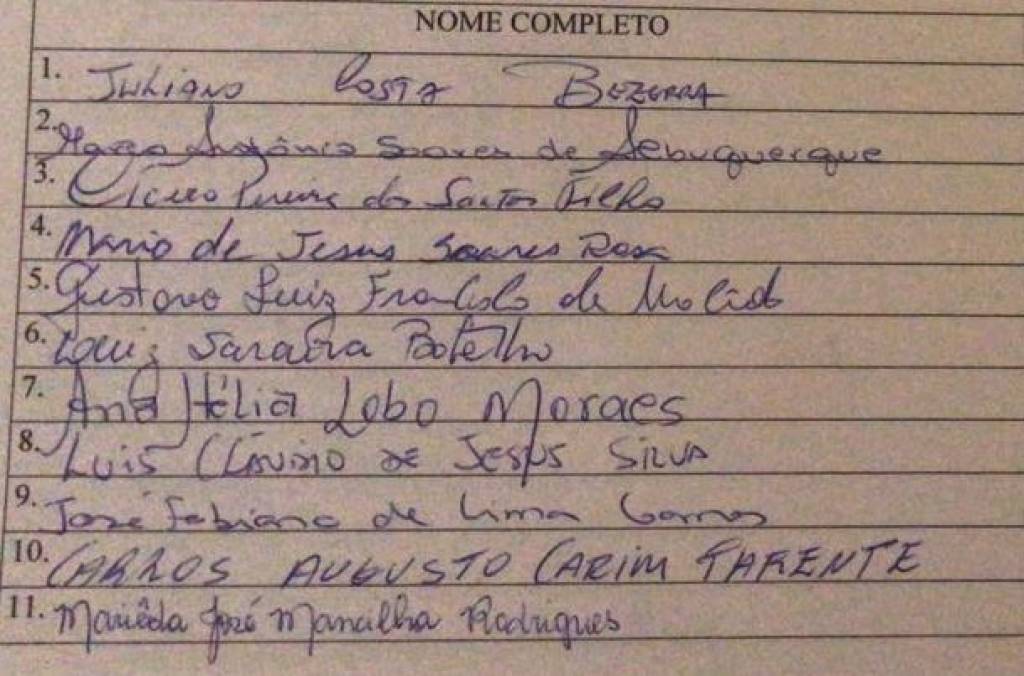 NOME COMPLETO
1. JULIANO COSTA BEZERRA
2. Antônio Soares de Albuquerque
3. Cícero Pereira dos Santos Filho
4. Mario de Jesus Soares Rosa
5. Gustavo Luiz Francisco de
6. Luiz Saraiva Botelho
7. Ana Hélia Lobo Moraes
8. LUIS CLÁUDIO DE JESUS SILVA
9. José Fabiano de Lima
10. CARLOS AUGUSTO CARIM PARENTE
11. José Rodrigues